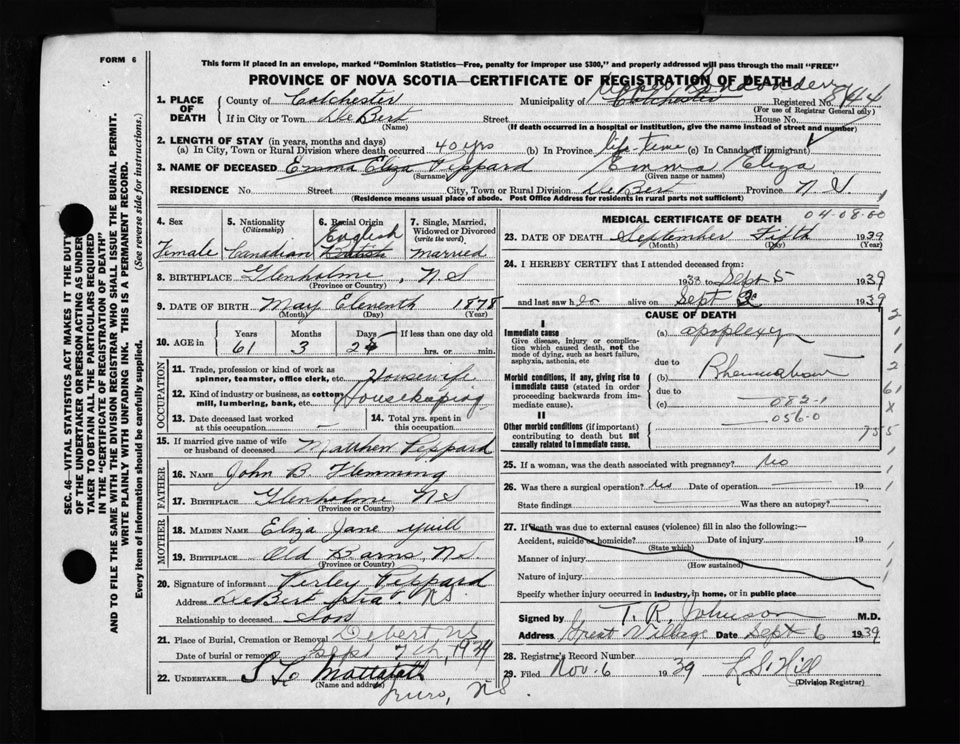 FORM 6
This form if placed in an envelope, marked "Dominion Statistics—Free, penalty for improper use $300," and properly addressed will pass through the mail "FREE"
PROVINCE OF NOVA SCOTIA—CERTIFICATE OF REGISTRATION OF DEATH
Upper Londonderry
1. PLACE OF DEATH
County of Colchester Municipality of Colchester Registered No.
(For use of Registrar General only)
If in City or Town DeBert Street House No.
(Name) (If death occurred in a hospital or institution, give the name instead of street and number)
2. LENGTH OF STAY (in years, months and days)
(a) In City, Town or Rural Division where death occurred 40 yrs (b) In Province life-time (c) In Canada (if immigrant)
3. NAME OF DECEASED Emma Eliza Peppard Emma Eliza
(Surname) (Given name or names)
RESIDENCE No. Street City, Town or Rural Division DeBert Province N S
(Residence means usual place of abode. Post Office Address for residents in rural parts not sufficient)
4. Sex Female
5. Nationality (Citizenship) Canadian
6. Racial Origin English
7. Single, Married, Widowed or Divorced (write the word) Married
8. BIRTHPLACE Glenholme, N.S
(Province or Country)
9. DATE OF BIRTH May Eleventh 1878
(Month) (Day) (Year)
10. AGE in Years Months Days If less than one day old
61 3 hrs. or min.
OCCUPATION
11. Trade, profession or kind of work as spinner, teamster, office clerk, etc. Housewife
12. Kind of industry or business, as cotton mill, lumbering, bank, etc. Housekeeping
13. Date deceased last worked at this occupation —
14. Total yrs. spent in this occupation
15. If married give name of wife or husband of deceased Matthew Peppard
FATHER
16. NAME John B Flemming
17. BIRTHPLACE Glenholme NS
(Province or Country)
MOTHER
18. MAIDEN NAME Eliza Jane Yuill
19. BIRTHPLACE Old Barns, N.S.
(Province or Country)
20. Signature of informant Perley Peppard
Address DeBert Sta. N.S.
Relationship to deceased Son
21. Place of Burial, Cremation or Removal Debert, NS
Date of burial or removal Sept 7th, 19
22. UNDERTAKER
(Name and address)
Truro, N.S.
MEDICAL CERTIFICATE OF DEATH
04-08-00
23. DATE OF DEATH September Fifth 1939
(Month) (Day) (Year)
24. I HEREBY CERTIFY that I attended deceased from:
1938 to Sept 5 1939
and last saw h alive on Sept 1939
CAUSE OF DEATH
I
Immediate cause
Give disease, injury or complication which caused death, not the mode of dying, such as heart failure, asphyxia, asthenia, etc
(a) apoplexy
due to
Morbid conditions, if any, giving rise to immediate cause (stated in order proceeding backwards from immediate cause).
(b) Rheumatism
due to
(c) 082-1
056-0
II
Other morbid conditions (if important) contributing to death but not causally related to immediate cause.
25. If a woman, was the death associated with pregnancy? No
26. Was there a surgical operation? No Date of operation — 19
State findings — Was there an autopsy? —
27. If death was due to external causes (violence) fill in also the following:—
Accident, suicide or homicide? Date of injury 19
(State which)
Manner of injury
(How sustained)
Nature of injury
Specify whether injury occurred in industry, in home, or in public place
Signed by T. R. Johnson M.D.
Address Great Village Date Sept-6 1939
28. Registrar's Record Number
29. Filed Nov. 6 1939 L. S. Hill
(Division Registrar)
SEC. 46—VITAL STATISTICS ACT MAKES IT THE DUTY
OF THE UNDERTAKER OR PERSON ACTING AS UNDER
TAKER TO OBTAIN ALL THE PARTICULARS REQUIRED
IN THE "CERTIFICATE OF REGISTRATION OF DEATH"
AND TO FILE THE SAME WITH THE DIVISION REGISTRAR WHO SHALL ISSUE THE BURIAL PERMIT.
WRITE PLAINLY WITH UNFADING INK. THIS IS A PERMANENT RECORD.
Every item of information should be carefully supplied. (See reverse side for instructions.)